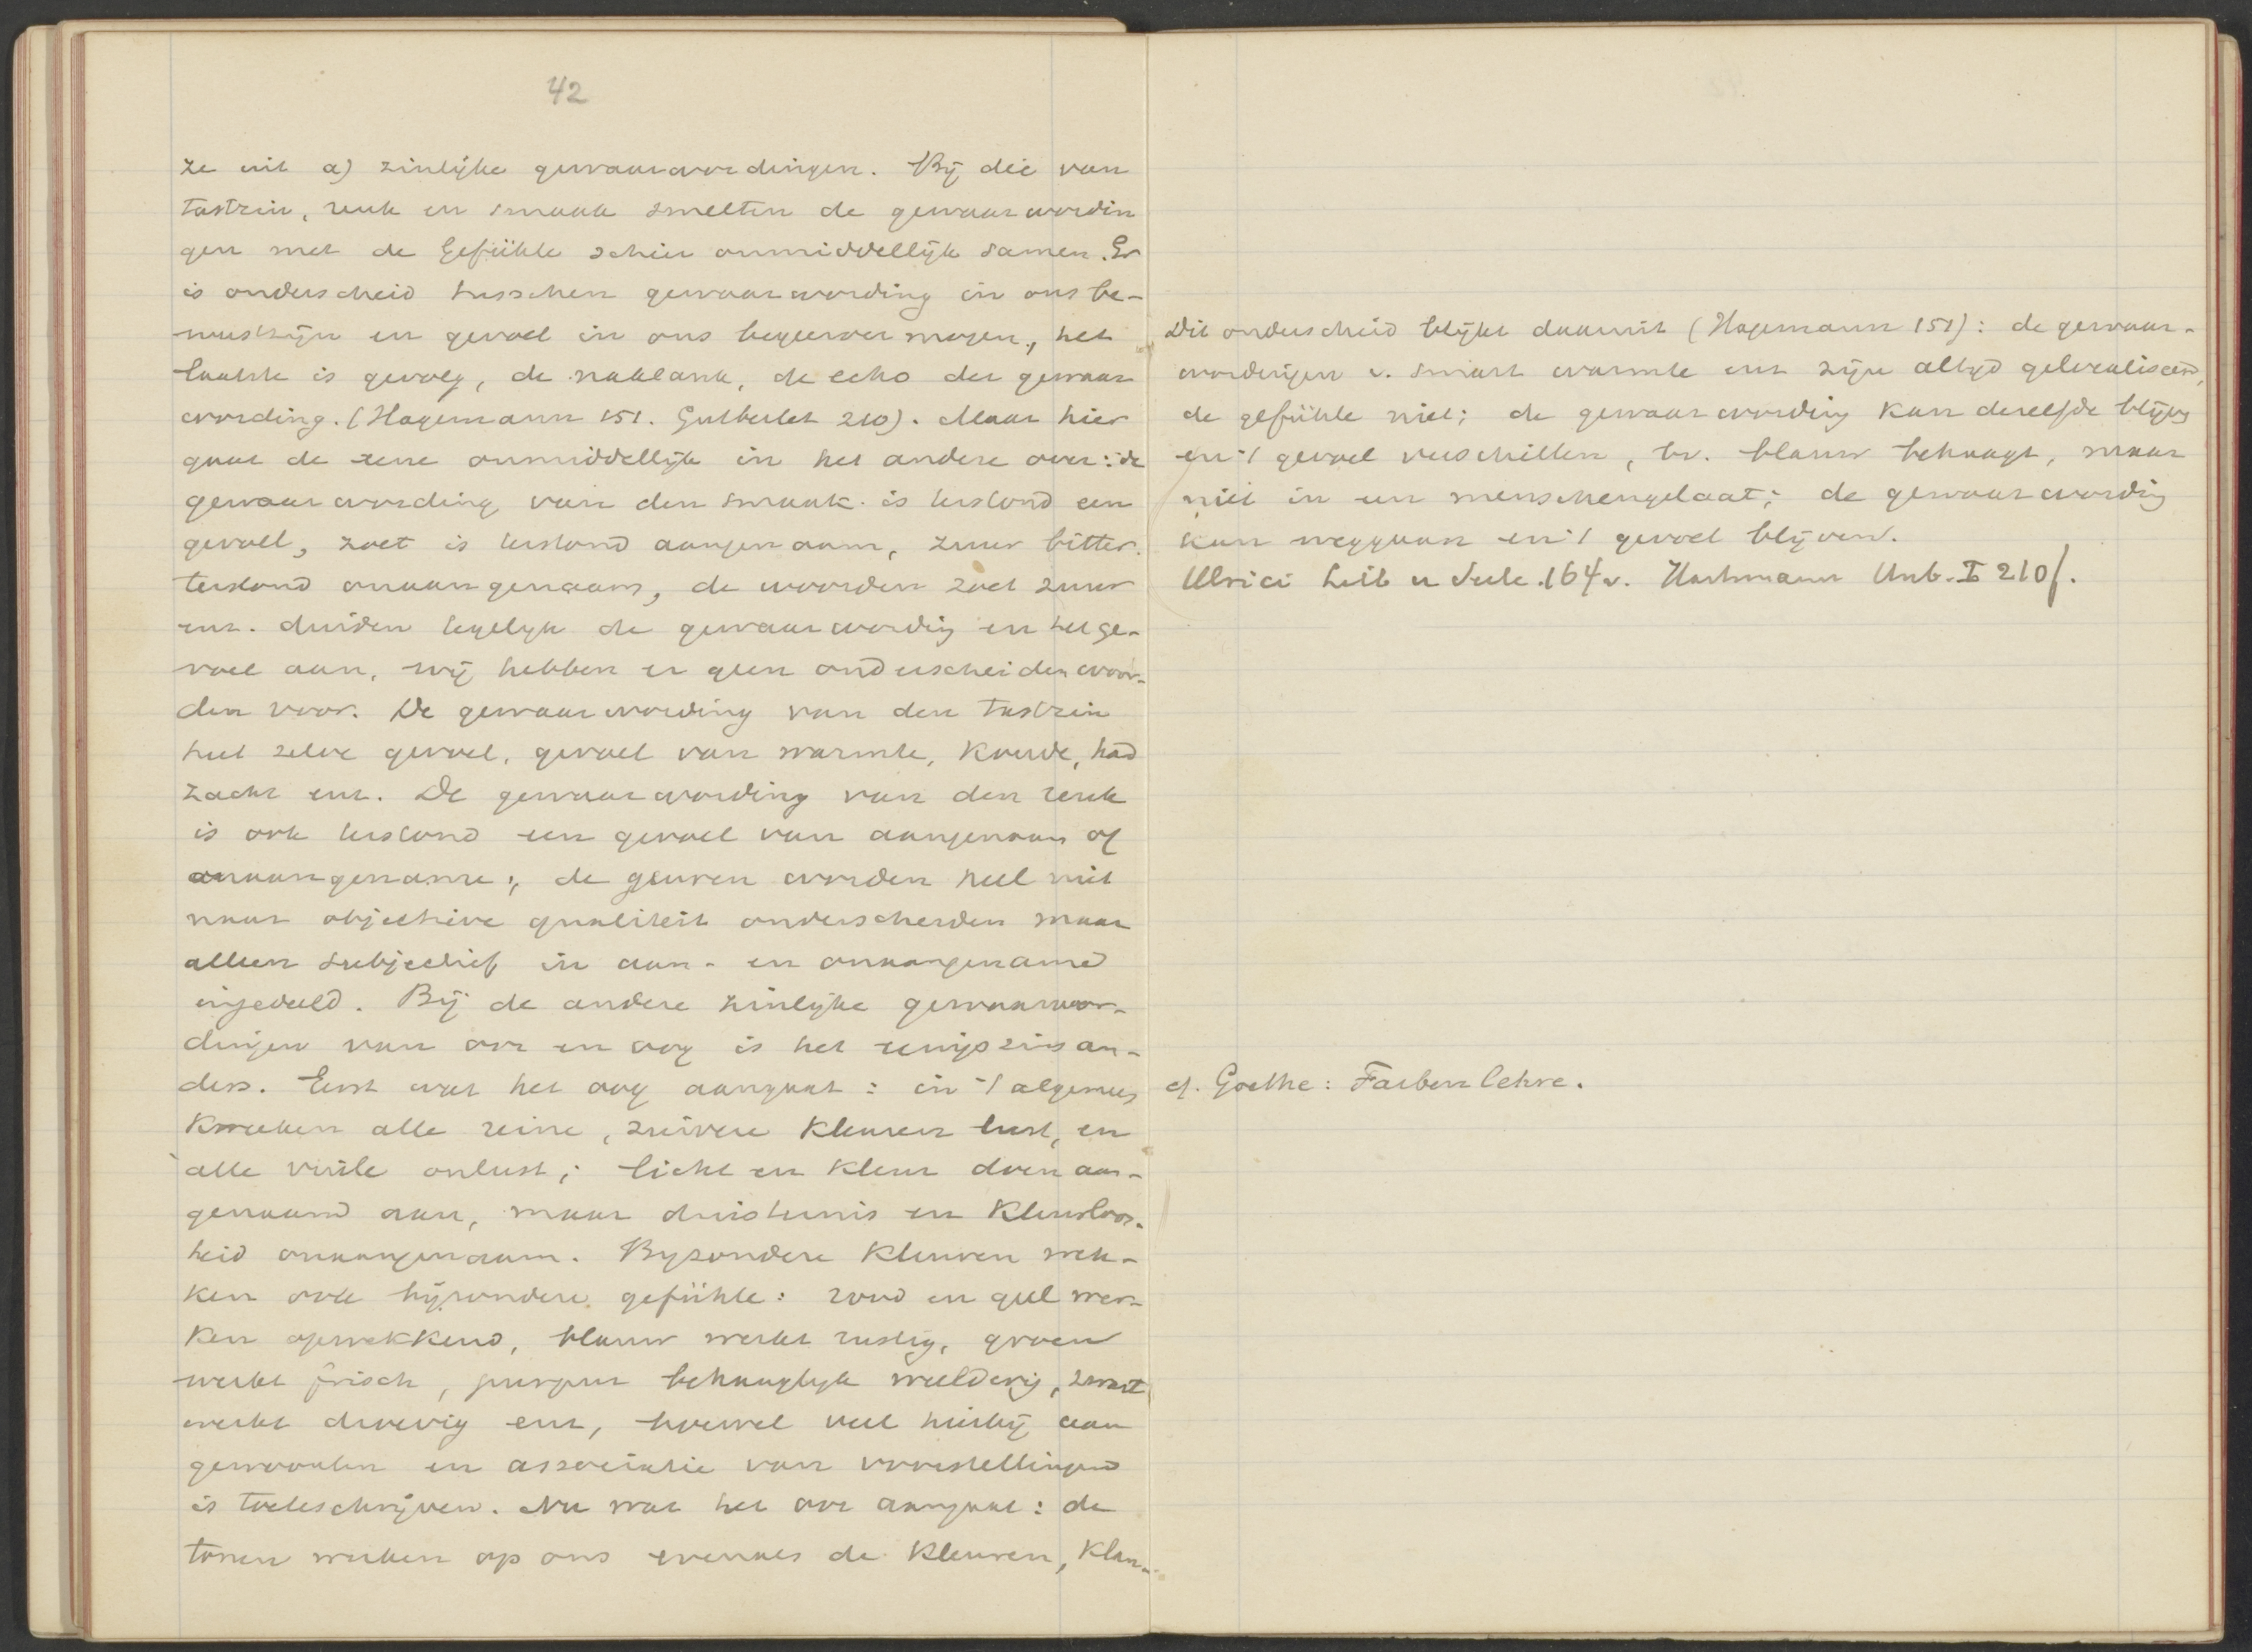 42
ze uit a) zinlijke gewaarwordingen. Bij die van
tastzin, reuk en smaak smelten de gewaarwordin
gen met de Gefühle schier onmiddellijk samen. Er
is onderscheid tusschen gewaarwording in ons be-
wustzijn en gevoel in ons begeervermogen, het
laatste is gevolg, de naklank, de echo der gewaar
wording. (Hagemann 151. Gutberlet 210). Maar hier
gaat de eene onmiddellijk in het andere over: de
gewaarwording van den smaak is terstond een
gevoel, zoet is terstond aangenaam, zuur bitter
terstond onaangenaam, de woorden zoet zuur
enz. duiden tegelijk de gewaarwording en het ge-
voel aan, wij hebben er geen onderscheiden woor-
den voor. De gewaarwording van den tastzin
heet zelve gevoel, gevoel van warmte, koude, hard
zacht enz. De gewaarwording van den reuk
is ook terstond een gevoel van aangenaam of
onaangename; de geuren worden heel niet
naar objectieve qualiteit onderscheiden maar
alleen subjectief in aan- en onaangename
ingedeeld. Bij de andere zinlijke gewaarwor-
dingen van oor en oog is het eenigszins an-
ders. Eerst wat het oog aangaat: in 't algemeen
kweeken alle reine, zuivere kleuren lust, en
alle vuile onlust; licht en kleur doen aan-
genaam aan, maar duisternis en kleurloos-
heid onaangenaam. Byzondere kleuren wek-
ken ook bijzondere gefühle: rood en geel wer-
ken opwekkend, blauw werkt rustig, groen
werkt frisch, purper behaaglijk weelderig, zwart
werkt droevig enz, hoewel veel hierbij aan
gewoonten en associatie van voorstellingen
is toeteschrijven. Nu wat het oor aangaat: de
tonen werken op ons evenals de kleuren, klan-
Dit onderscheid blijkt daaruit (Hagemann 151): de gewaar-
wordingen v. smart warmte enz zijn altijd gelocaliseerd,
de gefühle niet; de gewaarwording kan dezelfde blijven
en 't gevoel verschillen, bv. blauw behaagt, maar
niet in een menschengelaat; de gewaarwording
kan weggaan en 't gevoel blijven.
Ulrici Leib u Seele 164v. Hartmann Unb. I 210f.
cf. Goethe: Farbenlehre.